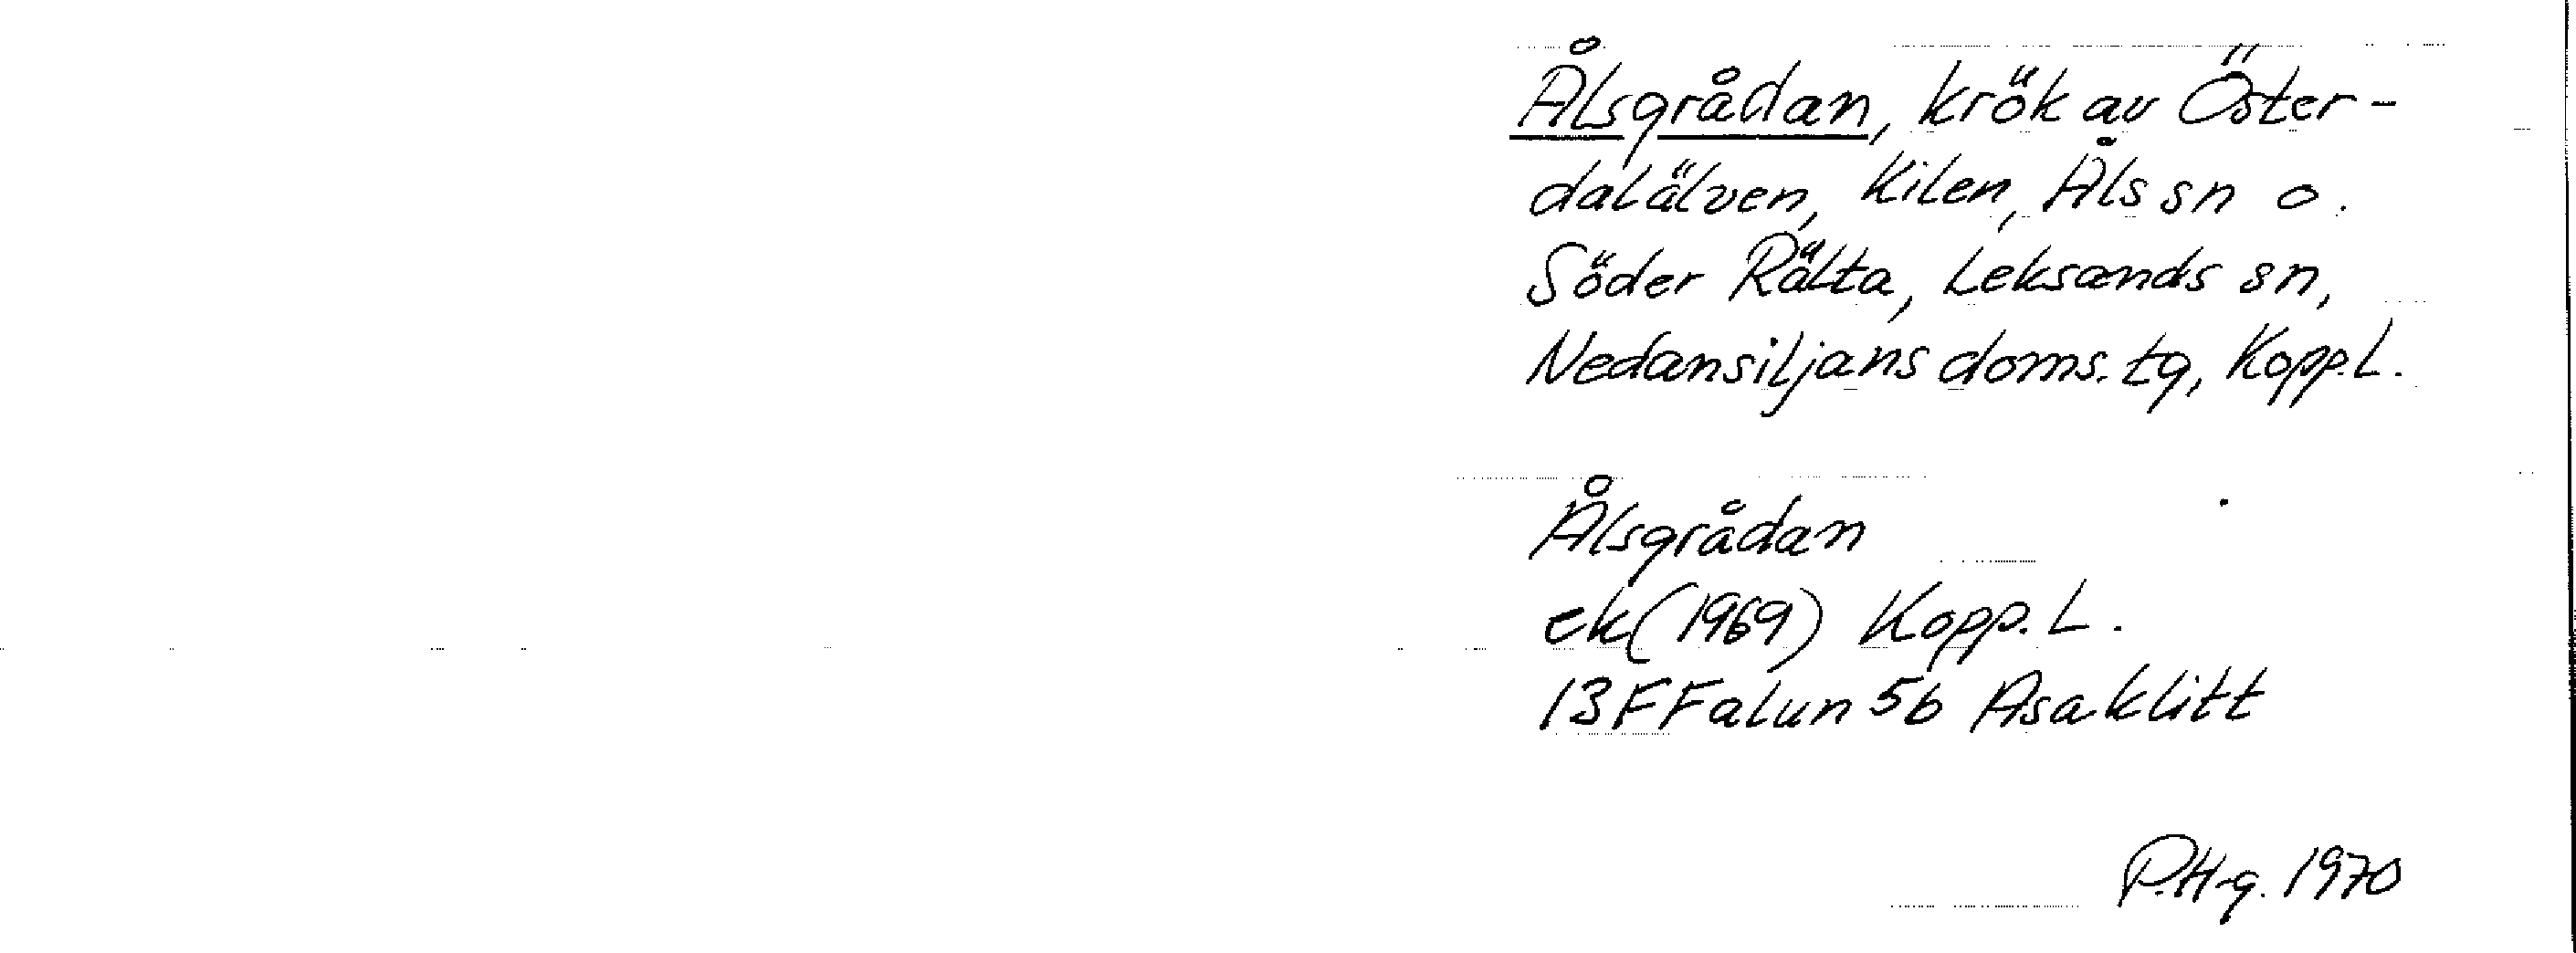 Ålsgrådan, krök av Öster-
dalälven, Kilen, Åls sn o.
Söder Rälta, Leksands sn,
Nedansiljans doms. tg, Kopp.L.
Ålsgrådan
ek (1969) Kopp. L.
13F Falun 5b Asaklitt
P.H-g. 1970